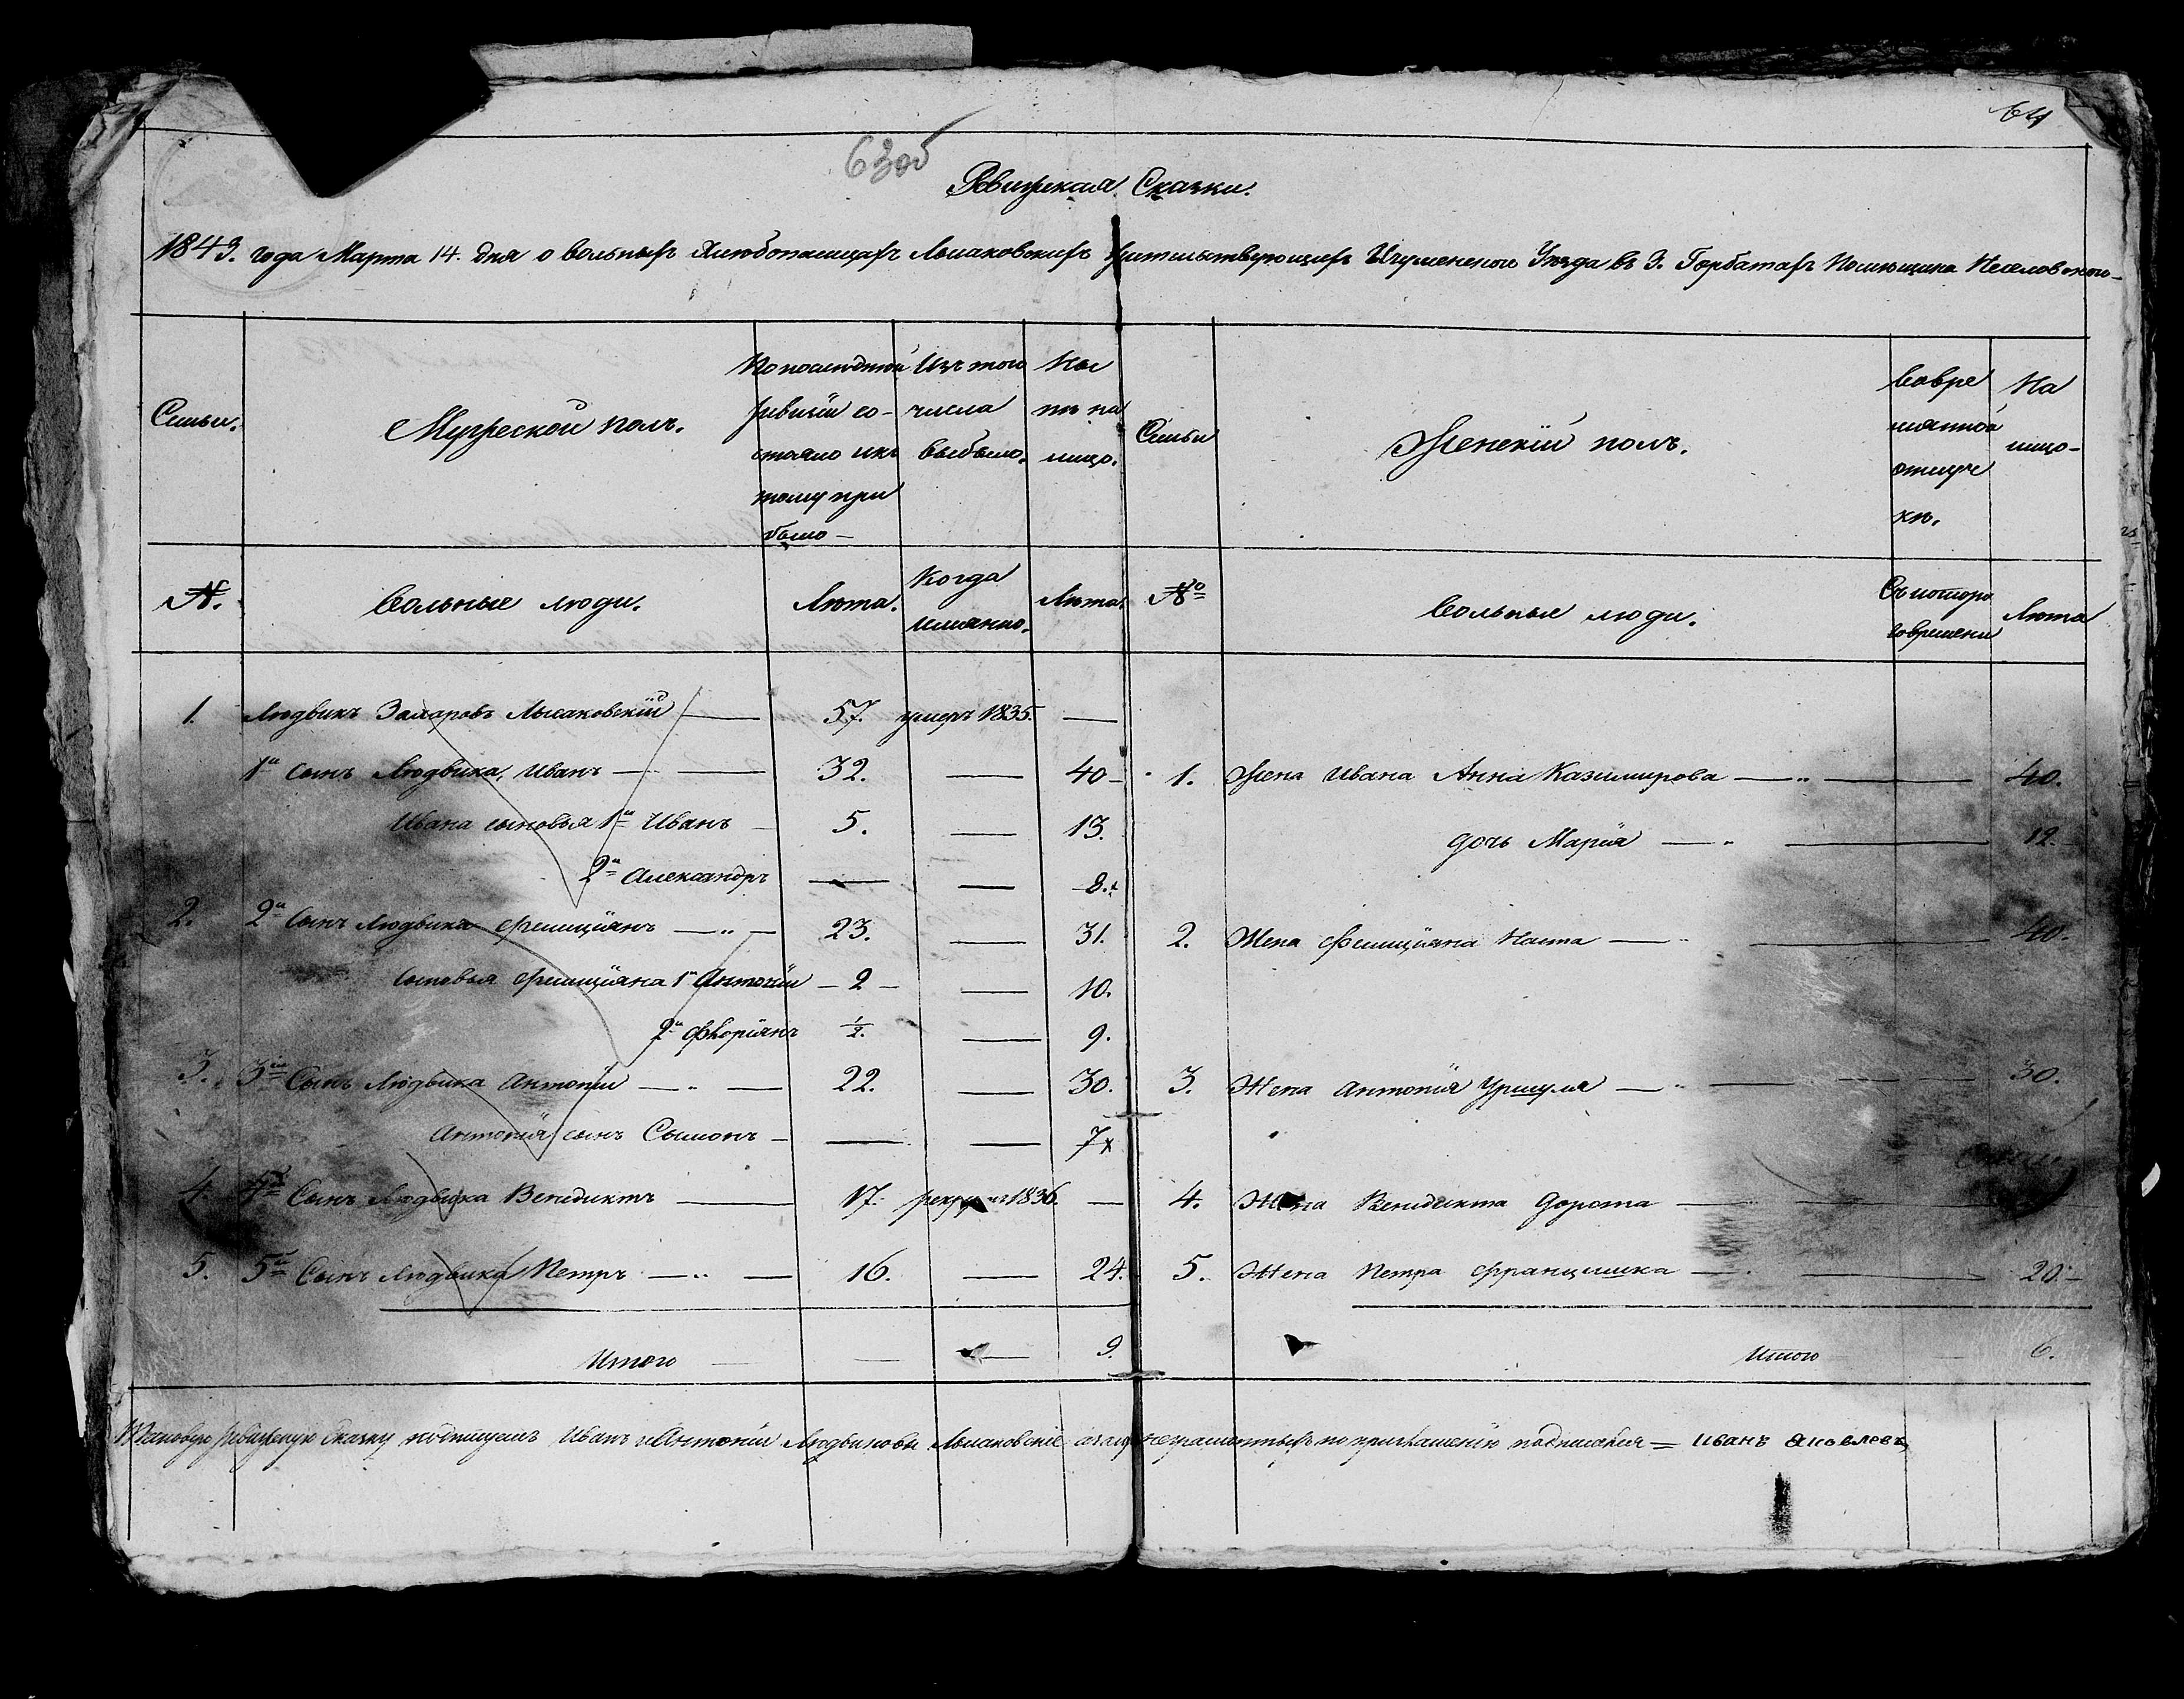 64
63об
Ревижская Сказка.
1843. года Марта 14. дня о вольныхъ Хлебопашцахъ Лысаковскихъ жительствующихъ Игуменского Уезда въ З. Горбатахъ Помещика
Семьи.
Мужеской полъ.
По последней ревизіи состояло и къ тому прибыло
Изъ того числа выбыло.
Ныне на лицо.
Семьи
Женскій полъ.
Во временной отлучке.
На лицо
№.
Вольные люди.
Лета.
Когда имянно.
Лета.
№
Вольные люди.
Съ которо времени
Лета
1. Людвикъ Захаровъ Лысаковскій 57. умеръ 1835. —
1й Сынъ Людвика, Иванъ 32. — 40 1. Жена Ивана Анна Казимирова 40.
Ивана сыновья 1й Иванъ 5. — 13. дочь Марія 12.
2й Александръ — — 8.
2. 2й Сынъ Людвика Фелиціянъ 23. — 31. 2. Жена Фелиціяна Наста 40.
Сыновья Фелиціяна 1й Антоній 2 — 10.
2й Флоріянъ ½. — 9.
3. 3ій Сынъ Людвика Антоній 22. — 30. 3. Жена Антонія Уршуля 30.
Антонія сынъ Сымонъ — — 7
4. 4й Сынъ Людвика Венедиктъ 17. 1836. — 4. Жена Венедикта Дорота
5. 5й Сынъ Людвика Петръ 16. — 24. 5. Жена Петра Францишка 20.
Итого — — 9. Итого 6.
Таковую ревижскую Сказку подписуемъ Иванъ и Антоній Людвиковы Лысаковскіе а за ихъ неграмотныхъ по приглашенію подписался = Иванъ Яковлевъ